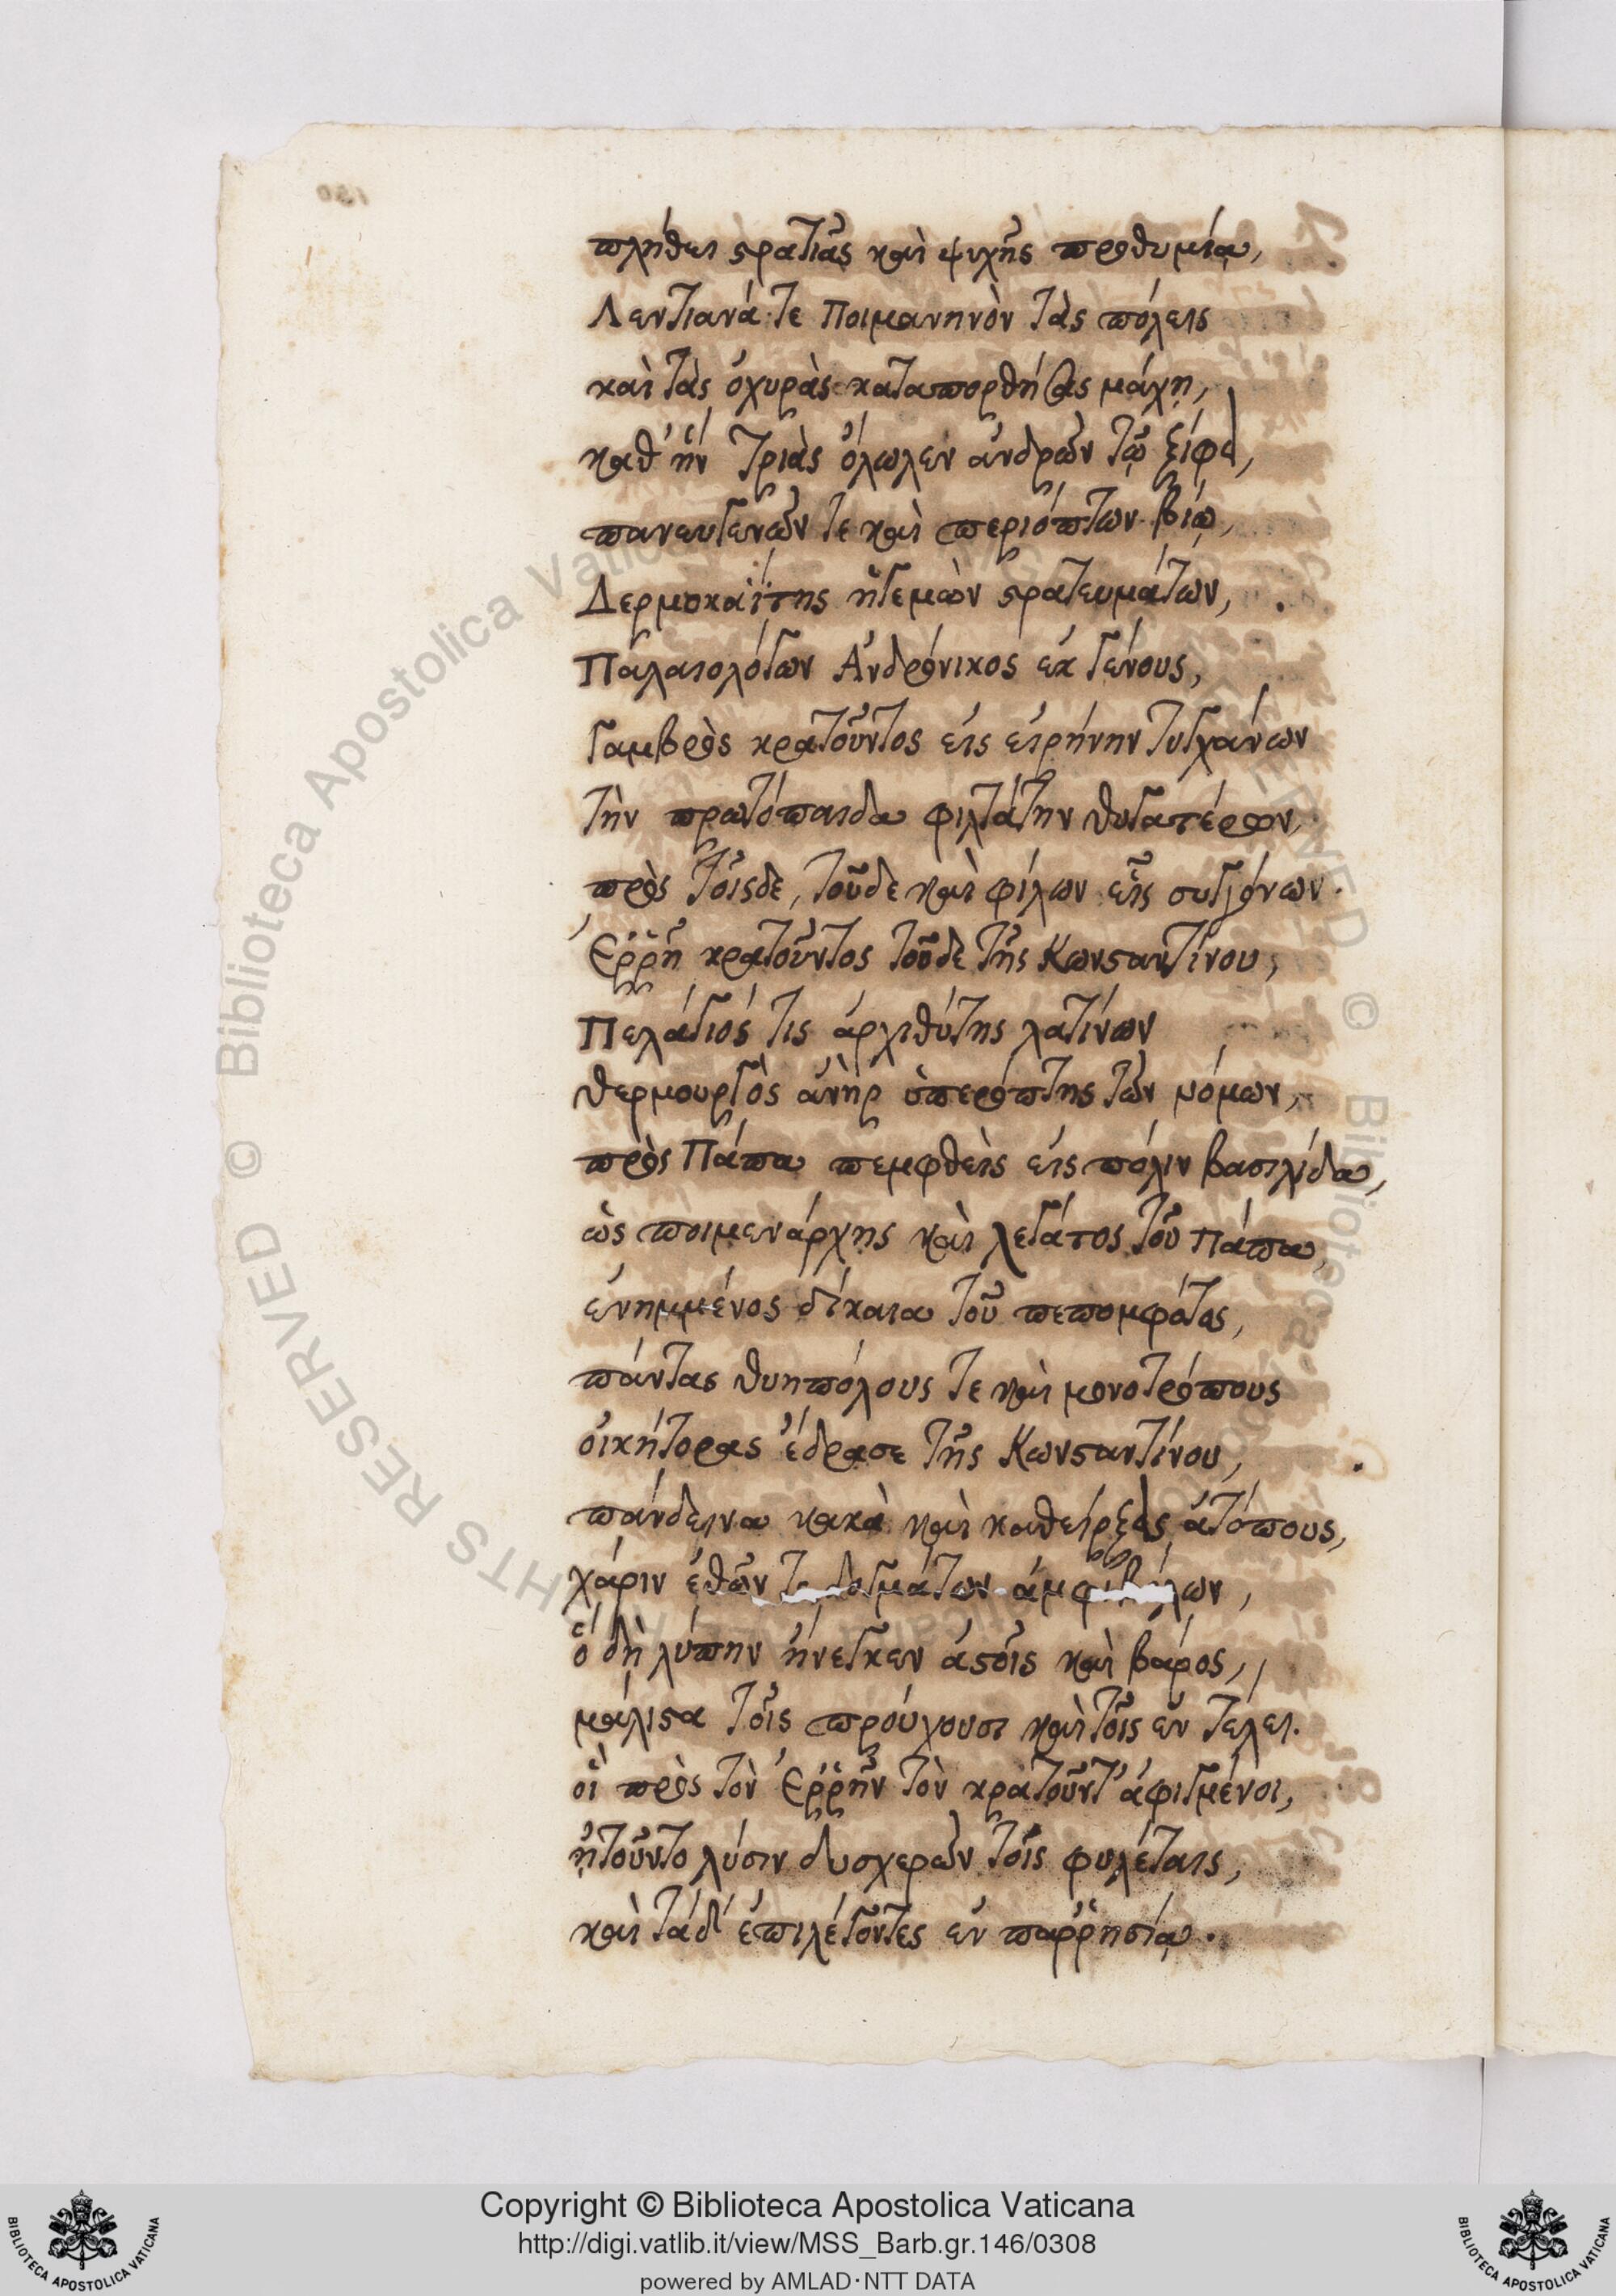 πλήθει στρατιᾶς καὶ ψυχῆς προθυμίᾳ,
Λεντιανά τε Ποιμανηνὸν τὰς πόλεις
καὶ τὰς ὀχυρὰς καταπορθήσας μάχῃ,
καθ' ἣν τριὰς ὄλωλεν ἀνδρῶν τῷ ξίφει,
πανευγενῶν τε καὶ περιόπτων βίῳ,
Δερμοκαΐτης ἡγεμὼν στρατευμάτων,
Παλαιολόγων Ἀνδρόνικος ἐκ γένους,
γαμβρὸς κρατοῦντος εἰς εἰρήνην τυγχάνων
τὴν πρωτόπαιδα φιλτάτην θυγατέρων,
πρὸς τοῖσδε, τοῦδε καὶ φίλων εἷς συγγόνων.
Ἐῤῥῆ κρατοῦντος τοῦδε τῆς Κωνσταντίνου,
Πελάγιός τις ἀρχιθύτης λατίνων
θερμουργὸς ἀνὴρ ὑπερόπτης τῶν νόμων,
πρὸς Πάπα πεμφθεὶς εἰς πόλιν βασιλίδα,
ὡς ποιμενάρχης καὶ λεγάτος τοῦ Πάπα,
ἐνημμένος δίκαια τοῦ πεπομφότος,
πάντας θυηπόλους τε καὶ μονοτρόπους
οἰκήτορας ἔδρασε τῆς Κωνσταντίνου,
πάνδεινα κακὰ καὶ καθείρξεις ἀτόπους,
χάριν ἐθῶν τε δογμάτων ἀμφιβόλων,
ὃ δὴ λύπην ἤνεγκεν ἀστοῖς καὶ βάρος,
μάλιστα τοῖς προύχουσι καὶ τοῖς ἐν τέλει.
οἳ πρὸς τὸν Ἐῤῥῆν τὸν κρατοῦντ' ἀφιγμένοι,
ᾐτοῦντο λύσιν δυσχερῶν τοῖς φυλέταις,
καὶ τάδ' ἐπιλέγοντες ἐν παῤῥησίᾳ.
Copyright © Biblioteca Apostolica Vaticana
http://digi.vatlib.it/view/MSS_Barb.gr.146/0308
powered by AMLAD·NTT DATA